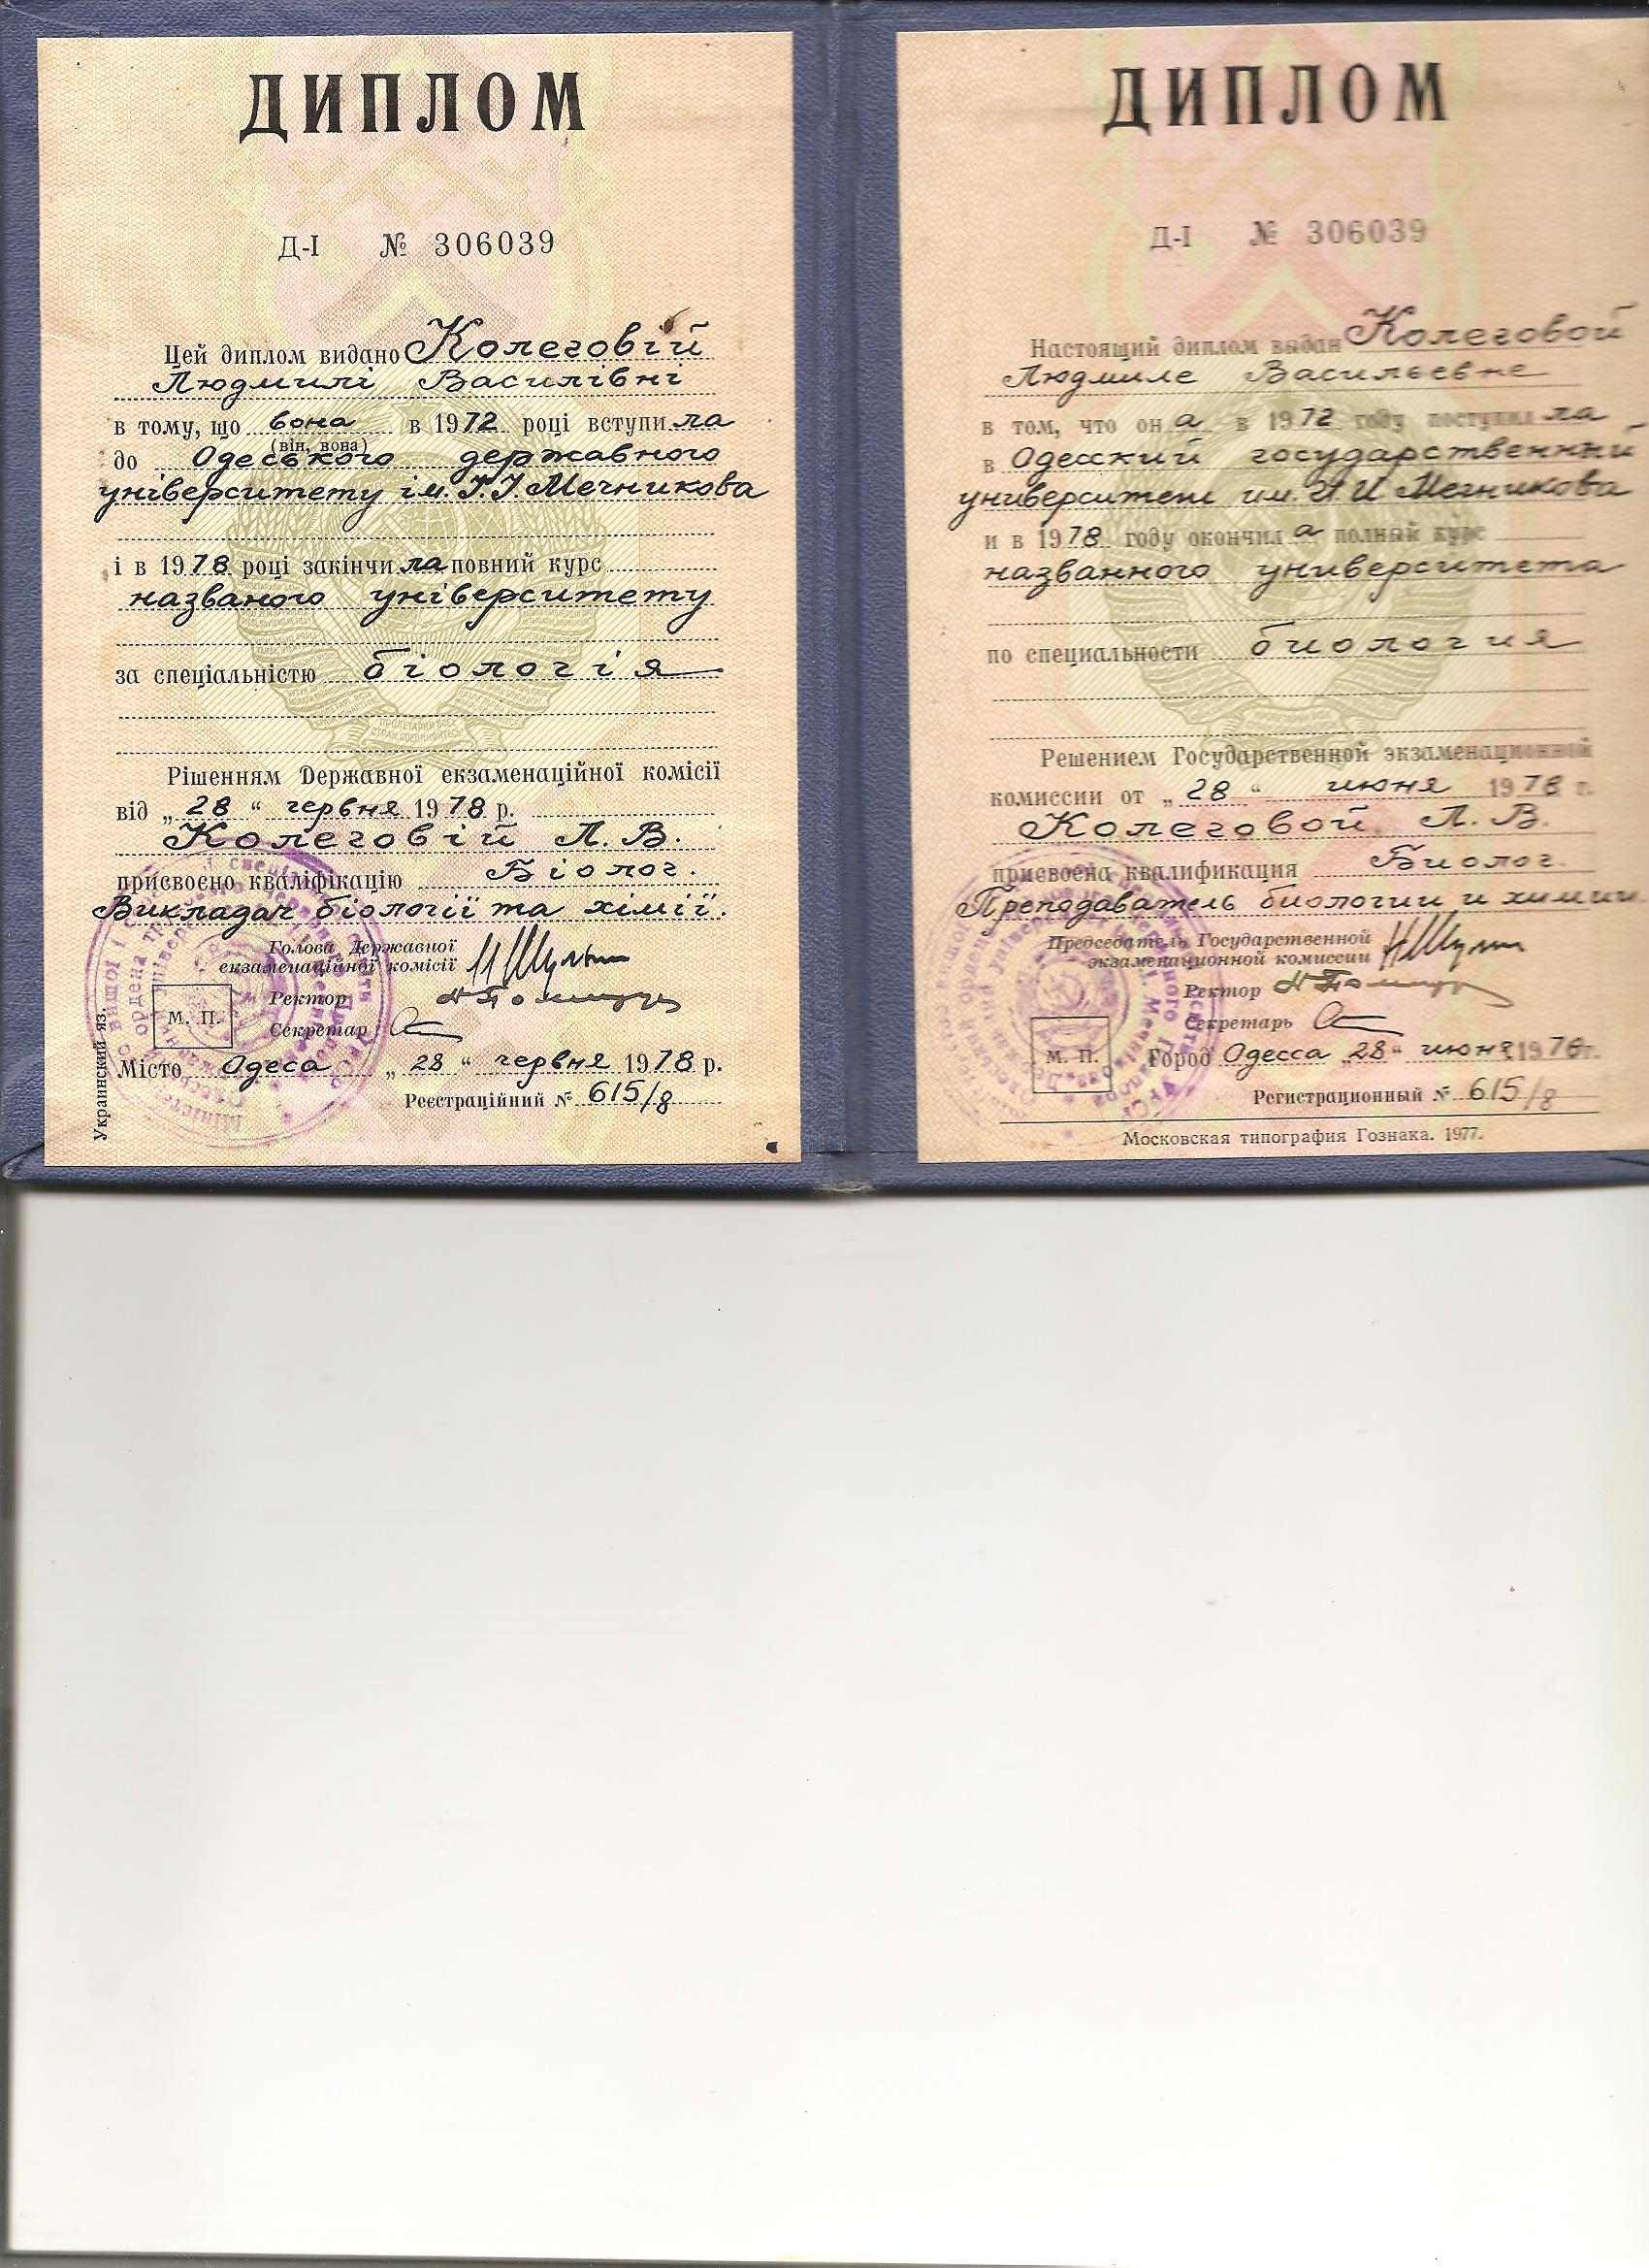 ДИПЛОМ
Д-I № 306039
Цей диплом видано Колеговій
Людмилі Василівні
в тому, що вона в 1972 році вступила
(він, вона)
до Одеського державного
університету ім. І. І. Мечникова
і в 1978 році закінчила повний курс
названого університету
за спеціальністю біологія
ПРОЛЕТАРИИ ВСЕХ
СТРАН, СОЕДИНЯЙТЕСЬ!
Рішенням Державної екзаменаційної комісії
від „28“ червня 1978 р.
Колеговій Л. В.
присвоєно кваліфікацію Біолог.
Викладач біології та хімії.
Голова Державної
екзаменаційної комісії
Ректор
М. П.
Секретар
Місто Одеса „28“ червня 1978 р.
Реєстраційний № 615/8
Украинский яз.
ДИПЛОМ
Д-I № 306039
Настоящий диплом выдан Колеговой
Людмиле Васильевне
в том, что она в 1972 году поступилла
в Одесский государственный
университет им. И. И. Мечникова
и в 1978 году окончила полный курс
названного университета
по специальности биология
Решением Государственной экзаменационной
комиссии от „28“ июня 1978 г.
Колеговой Л. В.
присвоена квалификация Биолог.
Преподаватель биологии и химии
Председатель Государственной
экзаменационной комиссии
Ректор
Секретарь
М. П.
Город Одесса „28“ июня 1978 г.
Регистрационный № 615/8
Московская типография Гознака. 1977.